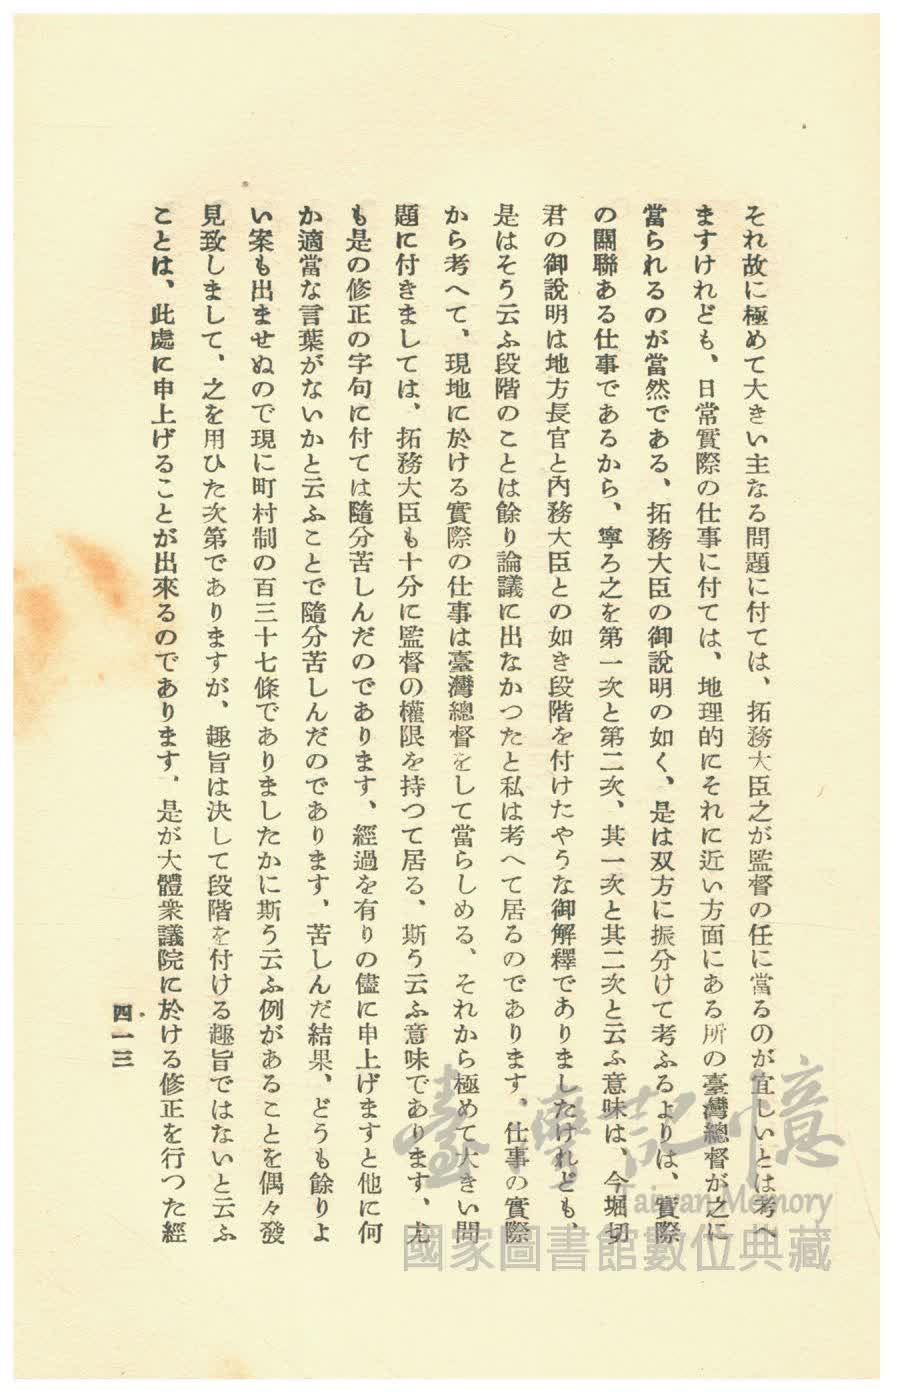 それ故に極めて大きい主なる問題に付ては、拓務大臣之が監督の任に當るのが宜しいとは考へ
ますけれども、日常實際の仕事に付ては、地理的にそれに近い方面にある所の臺灣總督が之に
當られるのが當然である、拓務大臣の御說明の如く、是は双方に振分けて考ふるよりは、實際
の關聯ある仕事であるから、寧ろ之を第一次と第二次、其一次と其二次と云ふ意味は、今堀切
君の御說明は地方長官と內務大臣との如き段階を付けたやうな御解釋でありましたけれども、
是はそう云ふ段階のことは餘り論議に出なかつたと私は考へて居るのであります、仕事の實際
から考へて、現地に於ける實際の仕事は臺灣總督をして當らしめる、それから極めて大きい問
題に付きましては、拓務大臣も十分に監督の權限を持つて居る、斯う云ふ意味であります、尤
も是の修正の字句に付ては隨分苦しんだのであります、經過を有りの儘に申上げますと他に何
か適當な言葉がないかと云ふことで隨分苦しんだのであります、苦しんだ結果、どうも餘りよ
い案も出ませぬので現に町村制の百三十七條でありましたかに斯う云ふ例があることを偶々發
見致しまして、之を用ひた次第でありますが、趣旨は決して段階を付ける趣旨ではないと云ふ
ことは、此處に申上げることが出來るのであります、是が大體衆議院に於ける修正を行つた經
四一三
臺灣記憶
Taiwan Memory
國家圖書館數位典藏